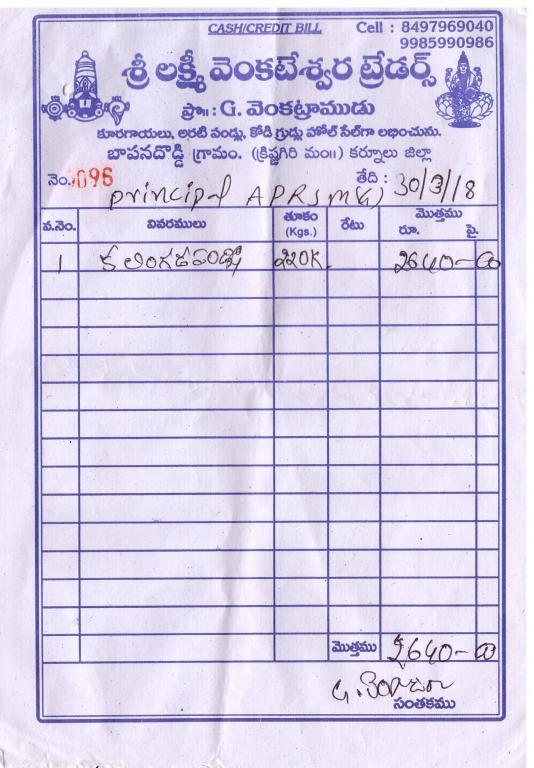 CASH/CREDIT BILL
Cell : 8497969040
9985990986
శ్రీ లక్ష్మీ వెంకటేశ్వర ట్రేడర్స్
ప్రొ॥ : G. వెంకట్రాముడు
కూరగాయలు, అరటి పండ్లు, కోడి గ్రుడ్లు హోల్ సేల్‌గా లభించును.
బాపనదొడ్డి గ్రామం. (క్రిష్ణగిరి మం॥) కర్నూలు జిల్లా
నెం. 096 తేది : 30/3/18
principal APRS
వ.నెం. వివరములు తూకం (Kgs.) రేటు మొత్తము రూ. పై.
1 కలింగడపండ్లు 220K. 2640-00
మొత్తము 2640-00
సంతకము